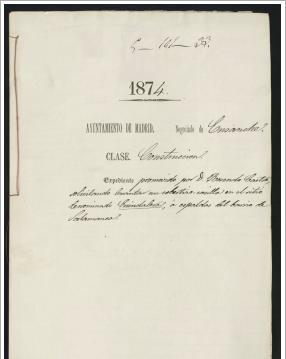 5 - 101 - 33.
1874.
AYUNTAMIENTO DE MADRID. Negociado de Ensanche.
CLASE. Construccion.
Expediente promovido por D. Rosendo
solicitando levantar un cobertizo en el sitio
denominado Guindalera, a espaldas del barrio de
Salamanca.